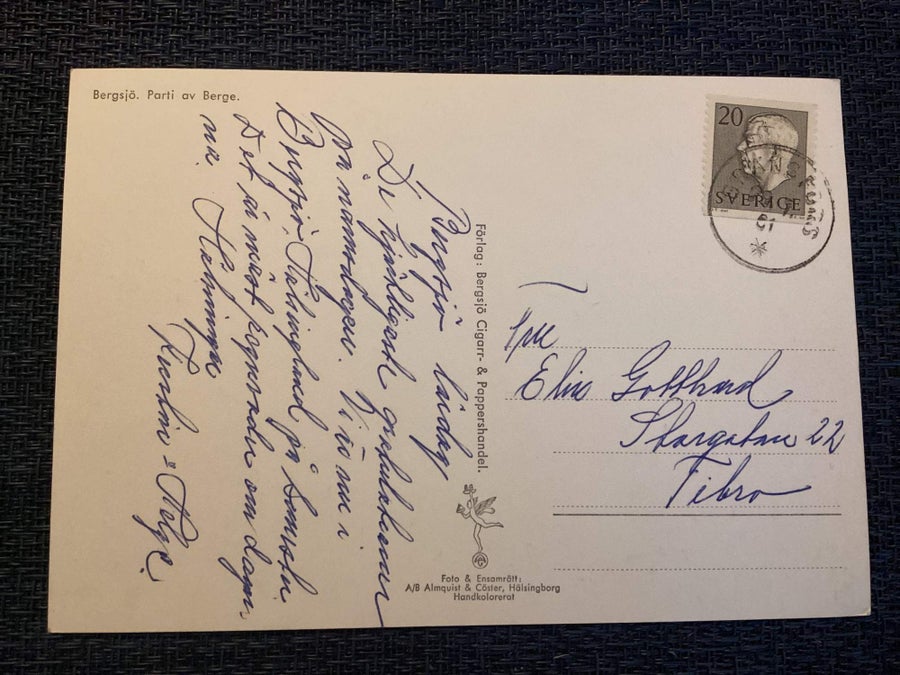 Bergsjö. Parti av Berge.
Bergsjö lördag
De hjärtligaste gratulationer
på namnsdagen. Vi äro nu i
Bergsjö, Hälsingland på semester.
Det är mest regnväder om dagar
na. Hälsningar
Helge.
Förlag: Bergsjö Cigarr- & Pappershandel.
Foto & Ensamrätt:
A/B Almquist & Cöster, Hälsingborg
Handkolorerat
20
SVERIGE
61
Fru
Elin Gotthard
Storgatan 22
Tibro